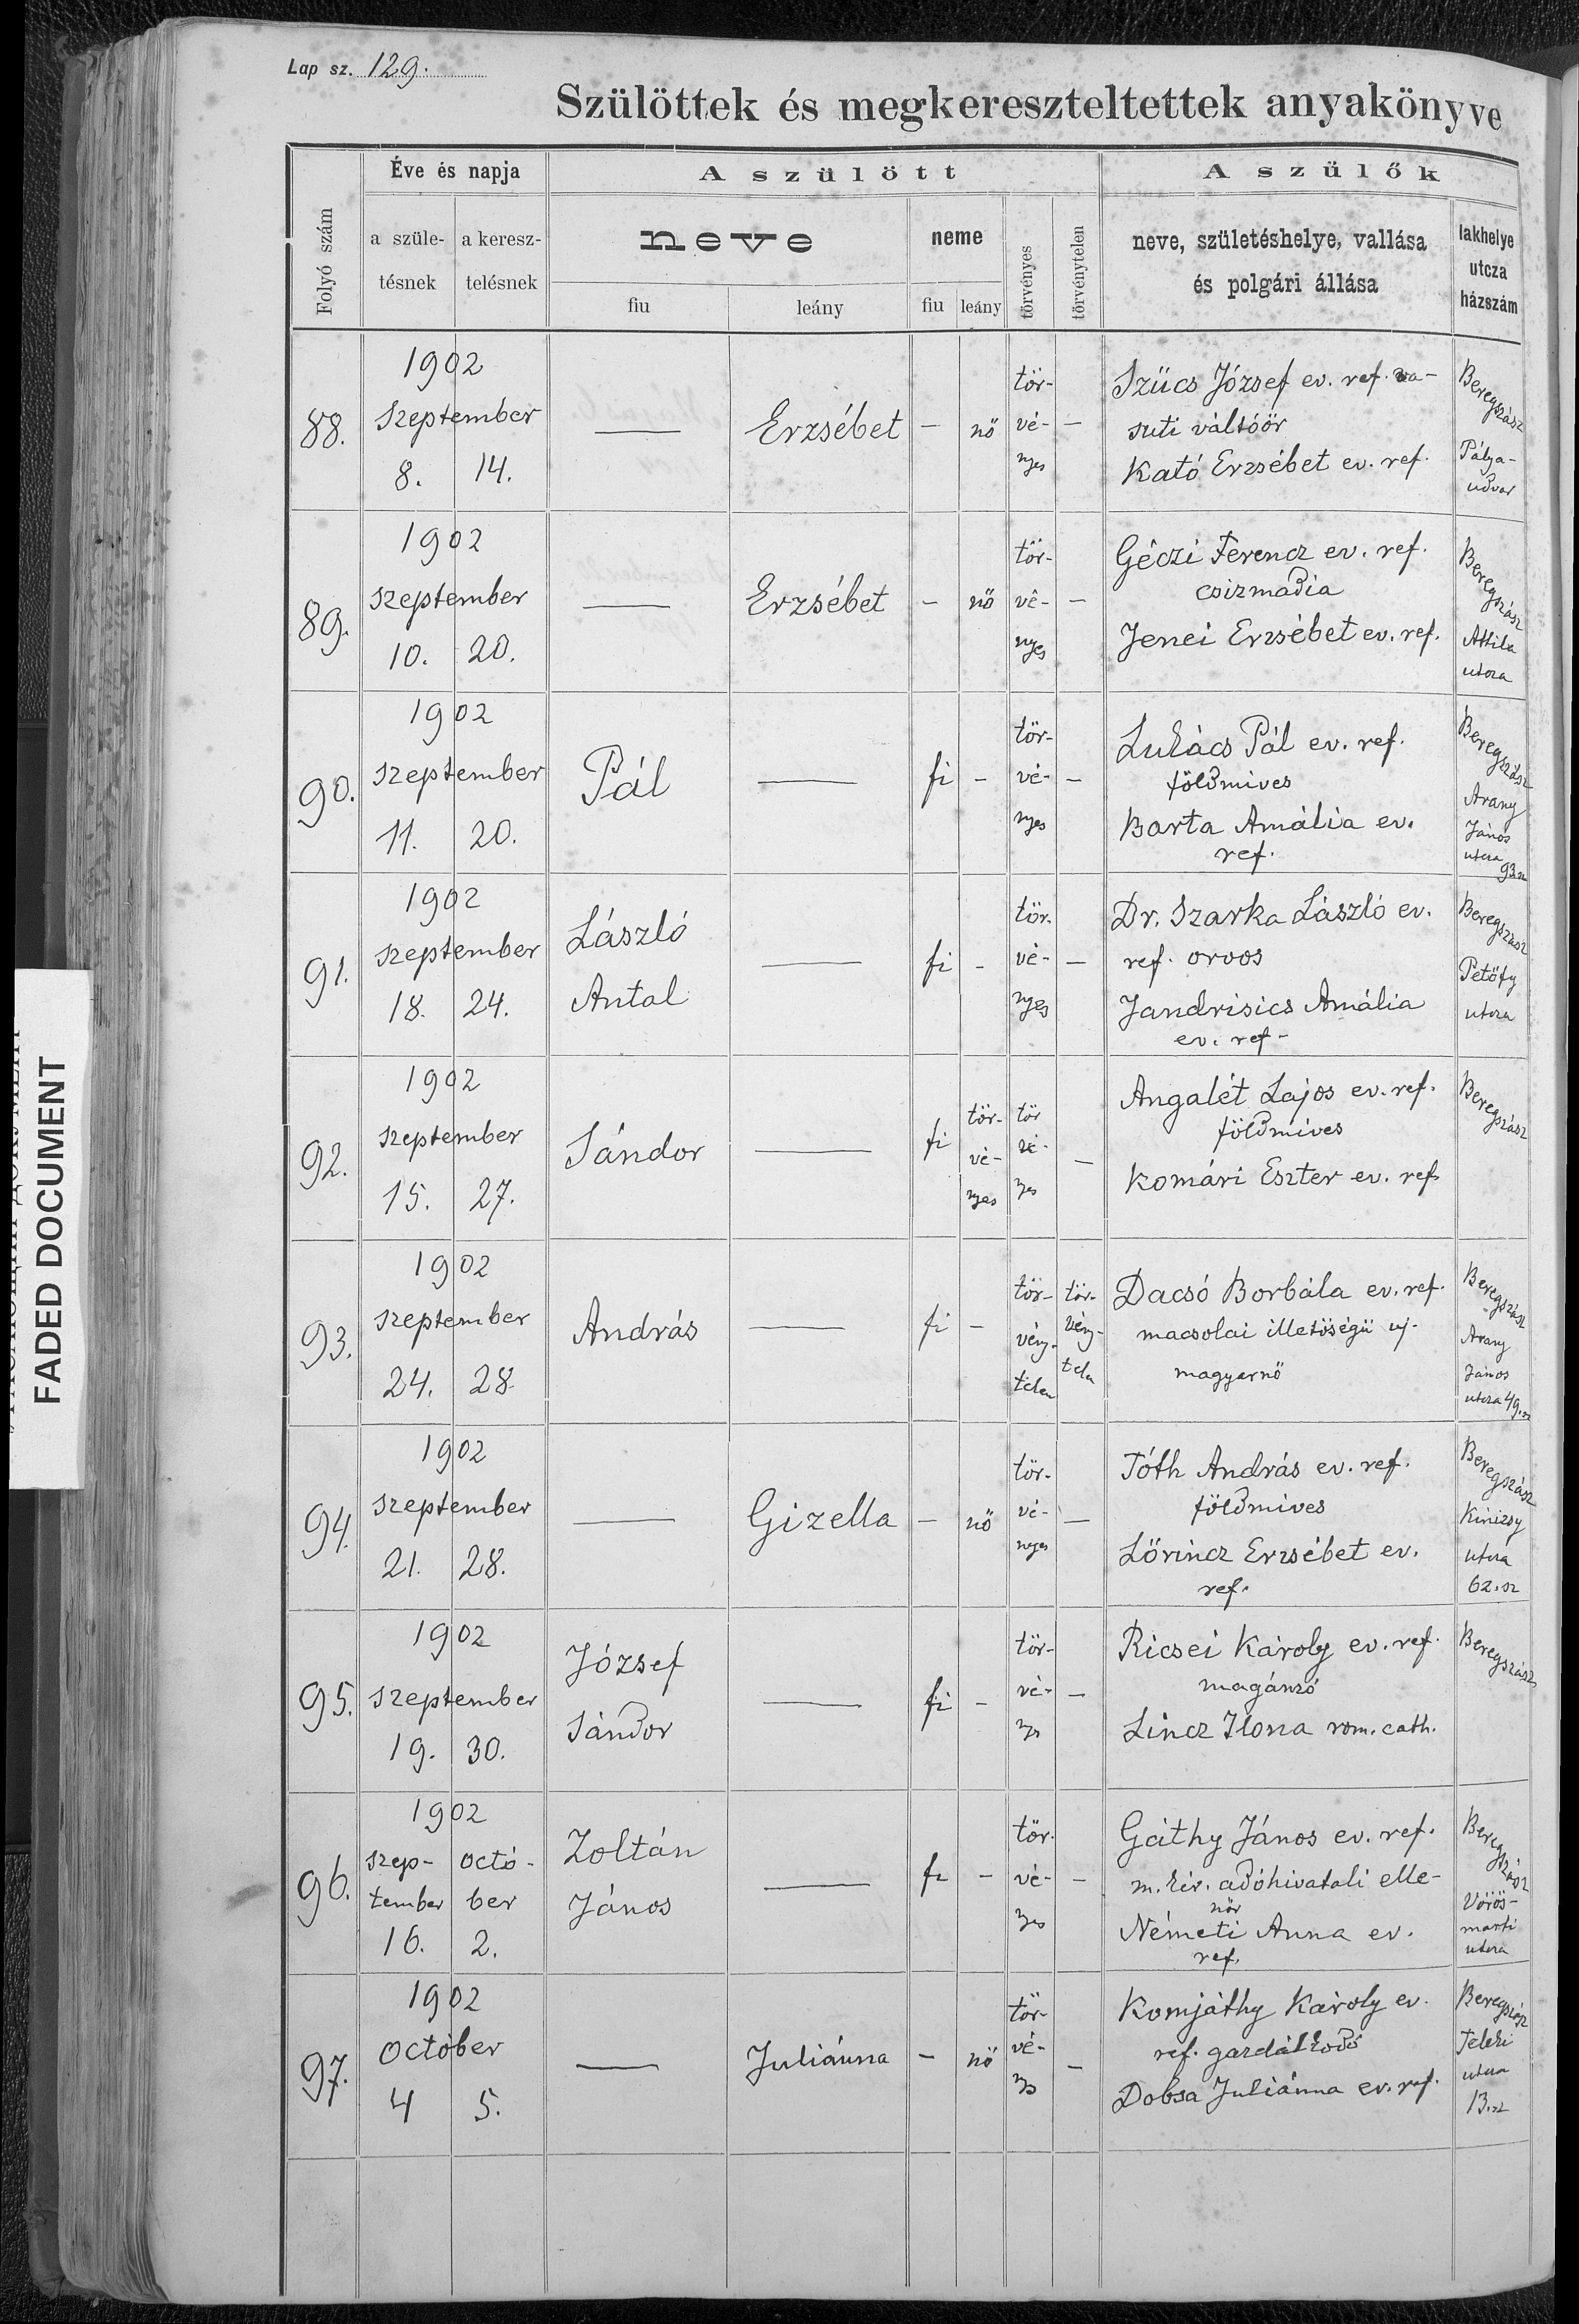 Lap sz. 129.
Szülöttek és megkereszteltettek anyakönyve
Folyó szám
Éve és napja
a szüle-
tésnek
a keresz-
telésnek
A szülött
neve
fiu
leány
neme
fiu
leány
törvényes
törvénytelen
A szülők
neve, születéshelye, vallása
és polgári állása
lakhelye
utcza
házszám
88.
1902
szeptember
8. 14.
—
Erzsébet
-
nő
tör-
vé-
nyes
-
Szücs József ev. ref. va-
suti váltóőr
Kató Erzsébet ev. ref.
Beregszász
Pálya-
udvar
89.
1902
szeptember
10. 20.
—
Erzsébet
-
nő
tör-
vé-
nyes
-
Géczi Ferencz ev. ref.
csizmadia
Jenei Erzsébet ev. ref.
Beregszász
Attila
utcza
90.
1902
szeptember
11. 20.
Pál
—
fi
-
tör-
vé-
nyes
-
Lukács Pál ev. ref.
földmives
Barta Amália ev.
ref.
Beregszász
Arany
János
utcza
93.sz
91.
1902
szeptember
18. 24.
László
Antal
—
fi
-
tör-
vé-
nyes
-
Dr. Szarka László ev.
ref. orvos
Jandrisics Amália
ev. ref-
Beregszász
Petőfy
utcza
92.
1902
szeptember
15. 27.
Sándor
—
fi
tör-
vé-
nyes
tör
vé-
nyes
-
Angalét Lajos ev. ref.
földmives
Komári Eszter ev. ref.
Beregszász
93.
1902
szeptember
24. 28.
András
—
fi
-
tör-
vény-
telen
tör-
vény-
telen
Dacsó Borbála ev. ref.
macsolai illetőségü uj-
magyarnő
Beregszász
Arany
János
utcza 49.sz
94.
1902
szeptember
21. 28.
—
Gizella
-
nő
tör-
vé-
nyes
-
Tóth András ev. ref.
földmives
Lőrincz Erzsébet ev.
ref.
Beregszász
Kinizsy
utcza
62.sz
95.
1902
szeptember
19. 30.
József
Sándor
—
fi
-
tör-
vé-
nyes
-
Ricsei Károly ev. ref.
magánzó
Lincz Ilona rom. cath.
Beregszász
96.
1902
szep- octó-
tember ber
16. 2.
Zoltán
János
—
fi
-
tör-
vé-
nyes
-
Gáthy János ev. ref.
m. kir. adóhivatali elle-
nőr
Németi Anna ev.
ref.
Beregszász
Vörös-
marti
utcza
97.
1902
október
4 5.
—
Juliánna
-
nő
tör-
vé-
nyes
-
Komjáthy Károly ev.
ref. gazdálkodó
Dobsa Juliánna ev. ref.
Beregszász
Teleki
utcza
13.sz
FADED DOCUMENT